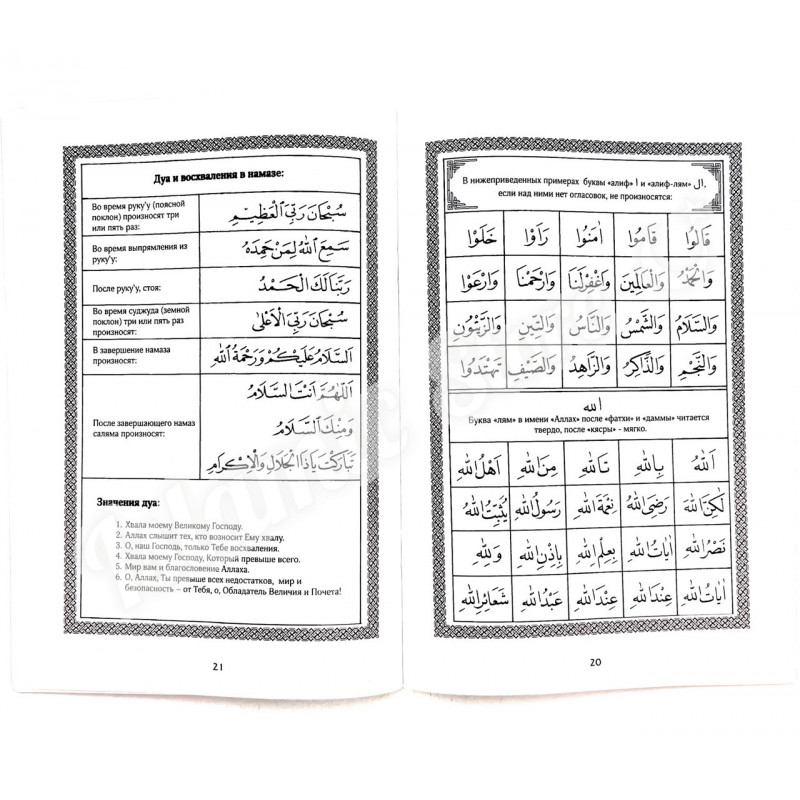 В нижеприведенных примерах буквы «алиф» ا и «алиф-лям» ال,
если над ними нет огласовок, не произносятся:
قَالُوا قَامُوا اٰمَنُوا رَاَوْا خَلَوْا
وَالْحَمْدُ وَالْعَالَمِينَ وَاغْفِرْلَنَا وَارْحَمْنَا وَارْعَوْا
وَالسَّلَامُ وَالشَّمْسُ وَالنَّاسُ وَالتِّينِ وَالزَّيْتُونِ
وَالنَّجْمِ وَالذَّاكِرُ وَالزَّاهِدُ وَالصَّيْفِ تَهْتَدُوا
الله
Буква «лям» в имени «Аллах» после «фатхи» и «даммы» читается
твердо, после «кясры» - мягко.
اَللهُ بِاللهِ تَاللهِ مِنَ اللهِ اَهْلُ اللهِ
لٰكِنَّ اللهَ رَضِيَ اللهُ نِعْمَةُ اللهِ رَسُولُ اللهِ يُثَبِّتُ اللهُ
نَصْرُ اللهِ اٰيَاتُ اللهِ بِعِلْمِ اللهِ بِاِذْنِ اللهِ وَلِلهِ
اٰيَاتُ اللهِ عِنْدَ اللهِ عِنْدَ اللهِ عَبْدُ اللهِ شَعَائِرَ اللهِ
20
Дуа и восхваления в намазе:
Во время руку'у (поясной
поклон) произносят три
или пять раз:
سُبْحَانَ رَبِّيَ الْعَظِيمِ
Во время выпрямления из
руку'у:
سَمِعَ اللهُ لِمَنْ حَمِدَهُ
После руку'у, стоя:
رَبَّنَا لَكَ الْحَمْدُ
Во время суджуда (земной
поклон) три или пять раз
произносят:
سُبْحَانَ رَبِّيَ الْاَعْلٰى
В завершение намаза
произносят:
اَلسَّلَامُ عَلَيْكُمْ وَرَحْمَةُ اللهِ
После завершающего намаз
саляма произносят:
اَللّٰهُمَّ اَنْتَ السَّلَامُ
وَمِنْكَ السَّلَامُ
تَبَارَكْتَ يَاذَا الْجَلَالِ وَالْاِكْرَامِ
Значения дуа:
1. Хвала моему Великому Господу.
2. Аллах слышит тех, кто возносит Ему хвалу.
3. О, наш Господь, только Тебе восхваления.
4. Хвала моему Господу, Который превыше всего.
5. Мир вам и благословение Аллаха.
6. О, Аллах, Ты превыше всех недостатков, мир и
безопасность – от Тебя, о, Обладатель Величия и Почета!
21